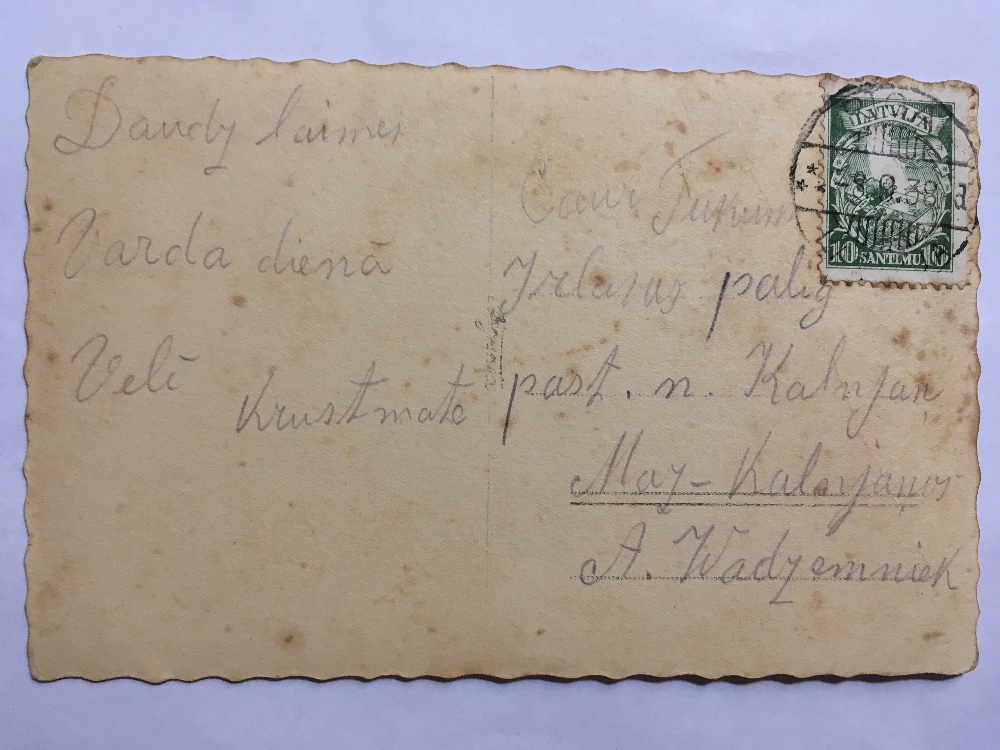 Daudz laimes
Varda dienā
Velī
Krustmate
Caur Tukum
palīg
past. n. Kalnjan
Maz-Kalnjaņos
A. Wadzemniek
LATVIJA
8.9.38
10 SANTIMU 10